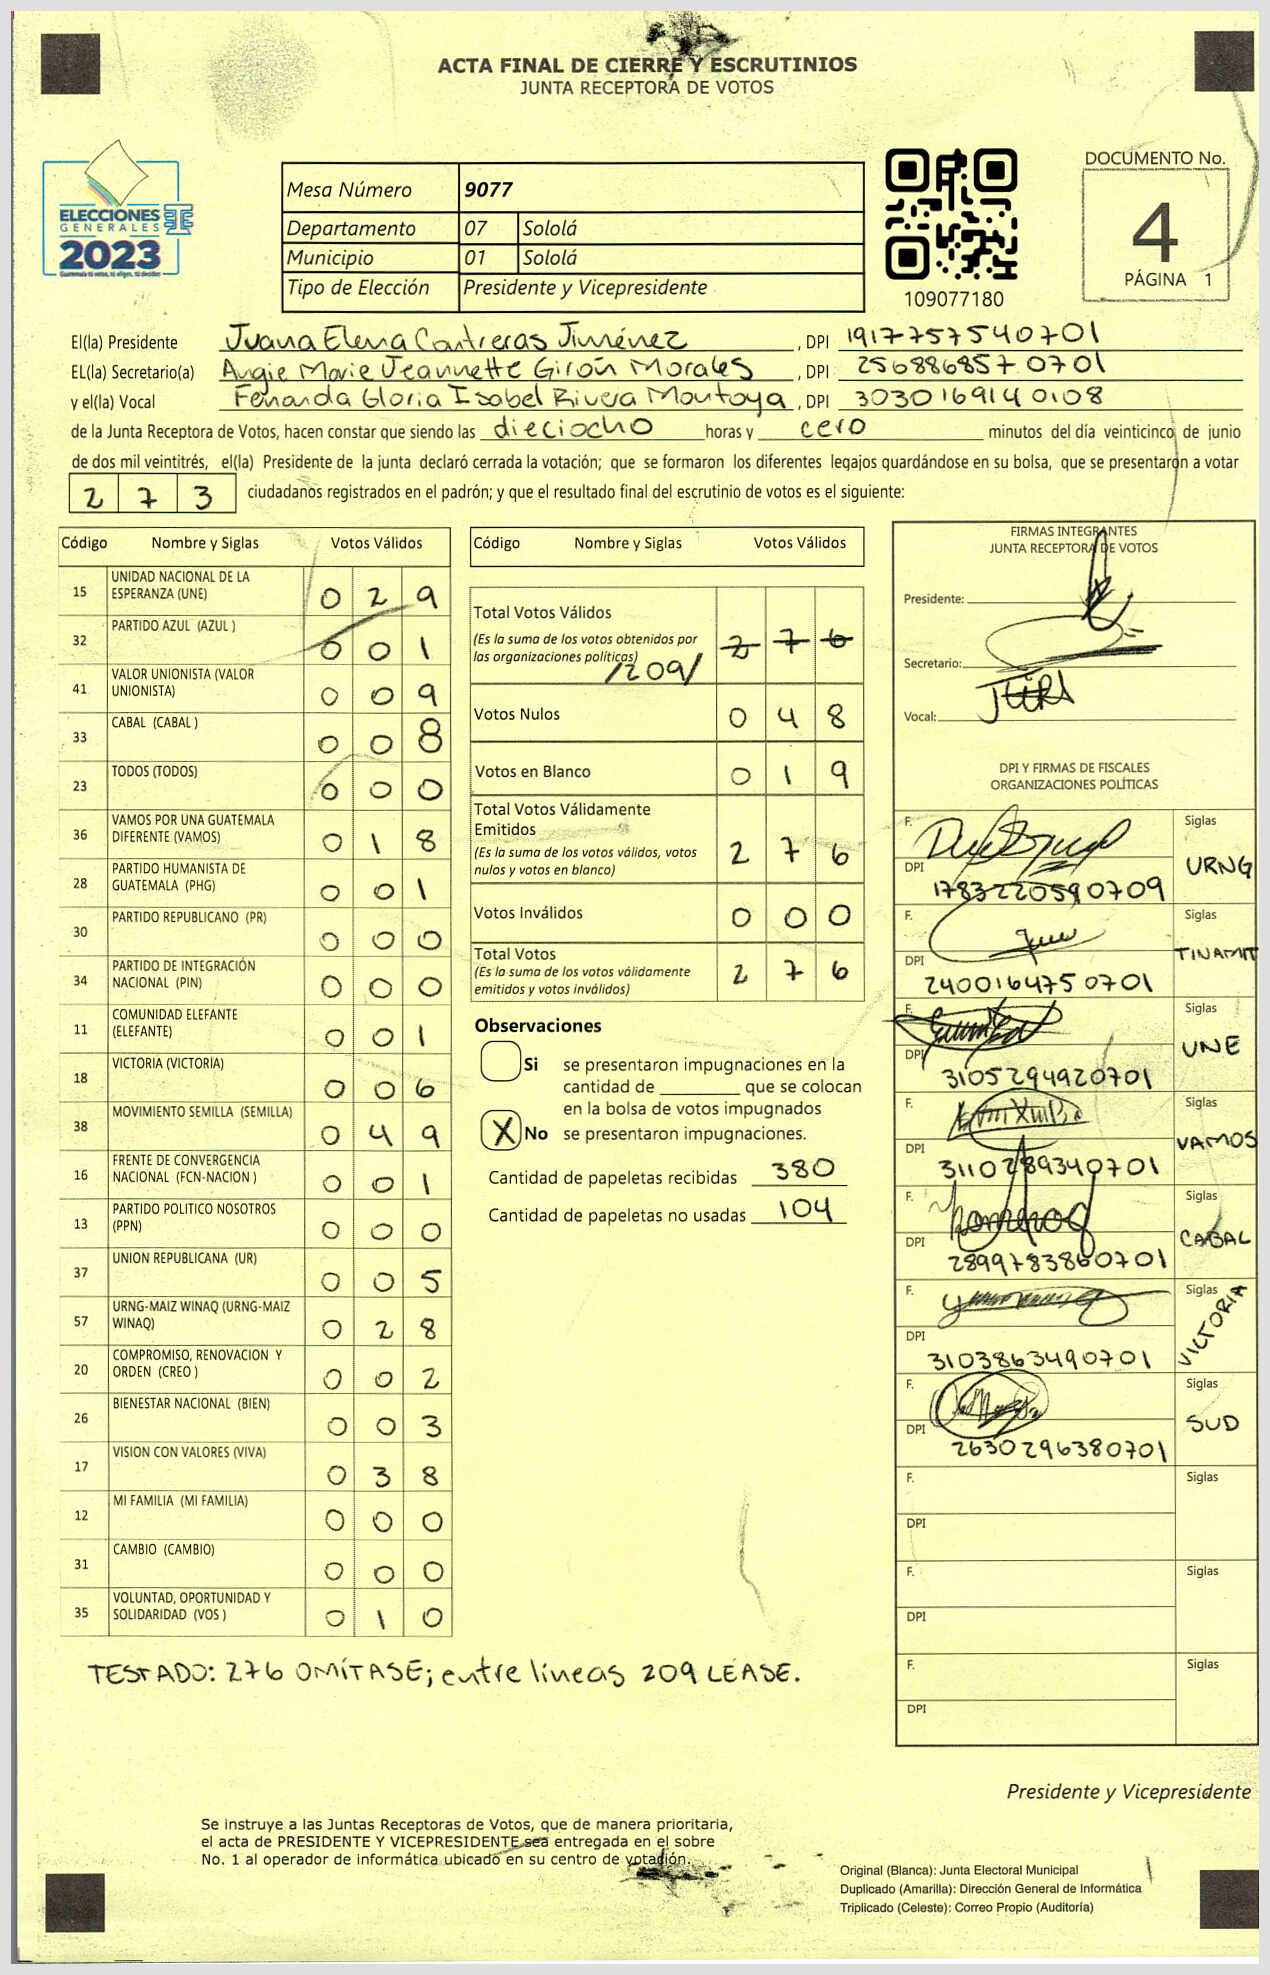 ACTA FINAL DE CIERRE Y ESCRUTINIOS
JUNTA RECEPTORA DE VOTOS
ELECCIONES
GENERALES
2023
Guatemala tú votas, tú eliges, tú decides
Mesa Número 9077
Departamento 07 Sololá
Municipio 01 Sololá
Tipo de Elección Presidente y Vicepresidente
109077180
DOCUMENTO No.
4
PÁGINA 1
El(la) Presidente Juana Elena Contreras Jiménez , DPI 1917757540701
EL(la) Secretario(a) Angie Marie Jeannette Girón Morales , DPI 2568868570701
y el(la) Vocal Fernanda Gloria Isabel Rivera Montoya , DPI 3030169140108
de la Junta Receptora de Votos, hacen constar que siendo las dieciocho horas y cero minutos del día veinticinco de junio
de dos mil veintitrés, el(la) Presidente de la junta declaró cerrada la votación; que se formaron los diferentes legajos guardándose en su bolsa, que se presentaron a votar
2 7 3 ciudadanos registrados en el padrón; y que el resultado final del escrutinio de votos es el siguiente:
Código Nombre y Siglas Votos Válidos
15 UNIDAD NACIONAL DE LA ESPERANZA (UNE) 0 2 9
32 PARTIDO AZUL (AZUL ) 0 0 1
41 VALOR UNIONISTA (VALOR UNIONISTA) 0 0 9
33 CABAL (CABAL ) 0 0 8
23 TODOS (TODOS) 0 0 0
36 VAMOS POR UNA GUATEMALA DIFERENTE (VAMOS) 0 1 8
28 PARTIDO HUMANISTA DE GUATEMALA (PHG) 0 0 1
30 PARTIDO REPUBLICANO (PR) 0 0 0
34 PARTIDO DE INTEGRACIÓN NACIONAL (PIN) 0 0 0
11 COMUNIDAD ELEFANTE (ELEFANTE) 0 0 1
18 VICTORIA (VICTORIA) 0 0 6
38 MOVIMIENTO SEMILLA (SEMILLA) 0 4 9
16 FRENTE DE CONVERGENCIA NACIONAL (FCN-NACION ) 0 0 1
13 PARTIDO POLITICO NOSOTROS (PPN) 0 0 0
37 UNION REPUBLICANA (UR) 0 0 5
57 URNG-MAIZ WINAQ (URNG-MAIZ WINAQ) 0 2 8
20 COMPROMISO, RENOVACION Y ORDEN (CREO ) 0 0 2
26 BIENESTAR NACIONAL (BIEN) 0 0 3
17 VISION CON VALORES (VIVA) 0 3 8
12 MI FAMILIA (MI FAMILIA) 0 0 0
31 CAMBIO (CAMBIO) 0 0 0
35 VOLUNTAD, OPORTUNIDAD Y SOLIDARIDAD (VOS ) 0 1 0
Código Nombre y Siglas Votos Válidos
Total Votos Válidos 2 7 6
(Es la suma de los votos obtenidos por
las organizaciones políticas) /209/
Votos Nulos 0 4 8
Votos en Blanco 0 1 9
Total Votos Válidamente
Emitidos 2 7 6
(Es la suma de los votos válidos, votos
nulos y votos en blanco)
Votos Inválidos 0 0 0
Total Votos 2 7 6
(Es la suma de los votos válidamente
emitidos y votos inválidos)
Observaciones
Si se presentaron impugnaciones en la
cantidad de ________ que se colocan
en la bolsa de votos impugnados
X No se presentaron impugnaciones.
Cantidad de papeletas recibidas 380
Cantidad de papeletas no usadas 104
FIRMAS INTEGRANTES
JUNTA RECEPTORA DE VOTOS
Presidente:
Secretario:
Vocal:
DPI Y FIRMAS DE FISCALES
ORGANIZACIONES POLÍTICAS
F. Siglas URNG
DPI 1783220590709
F. Siglas TINAMIT
DPI 2400164750701
F. Siglas UNE
DPI 3105294920701
F. Siglas VAMOS
DPI 3110289340701
F. Siglas CABAL
DPI 2899783860701
F. Siglas VICTORIA
DPI 3103863490701
F. Siglas SUD
DPI 2630296380701
F. Siglas
DPI
F. Siglas
DPI
F. Siglas
DPI
TESTADO: 276 OMÍTASE; entre líneas 209 LÉASE.
Presidente y Vicepresidente
Se instruye a las Juntas Receptoras de Votos, que de manera prioritaria,
el acta de PRESIDENTE Y VICEPRESIDENTE sea entregada en el sobre
No. 1 al operador de informática ubicado en su centro de votación.
Original (Blanca): Junta Electoral Municipal
Duplicado (Amarilla): Dirección General de Informática
Triplicado (Celeste): Correo Propio (Auditoría)